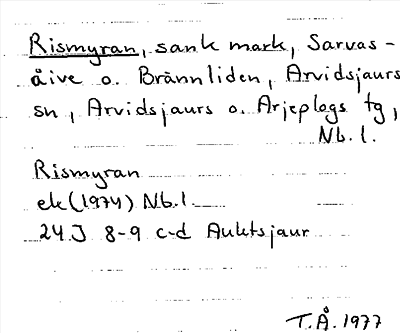 Rismyran, sank mark, Sarvas-
åive o. Brännliden, Arvidsjaurs
sn, Arvidsjaurs o. Arjeplogs tg,
Nb.l.
Rismyran
ek (1974) Nb.l
24J 8-9 c-d Auktsjaur
T.Å. 1977